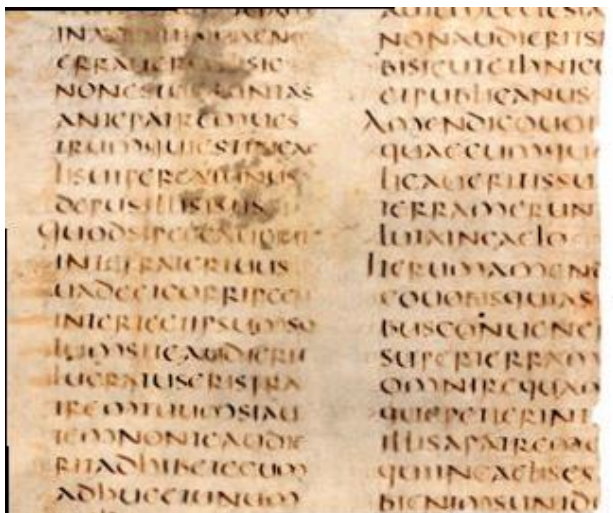 ERRAUERUNTSIC
NONESTUOLUNTAS
ANTEPATREMUES
TRUMQUIESTINCAE
LISUTPEREATUNUS
DEPUSILLISISTIS
QUODSIPECCAUERIT
INTEFRATERTUUS
UADEETCORRIPEEU
INTERTEETIPSUMSO
LUMSITEAUDIERIT
LUCRATUSERISFRA
TREMTUUMSIAU
TEMNONTEAUDIE
RITADHIBETECUM
ADHUCETUNUM
AUTEMECCLESIA
NONAUDIERITSI
BISICUTETHNICU
ETPUBLICANUS
AMENDICOUOB
QUAECUMQU
LIGAUERITISSU
TERRAMERUN
LUTAINCAELO
ITERUMAMEND
COUOBISQUIAS
BUSCONUENE
SUPERTERRAM
OMNIREQUAM
QUEPETIERINT
ILLISAPATREME
QUIINCAELISES
BIENIMSUNTDU